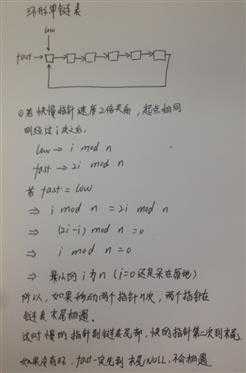 环形单链表
low
fast
①若快慢指针速度2倍关系，起点相同
则经过i次之后.
low → i mod n
fast → 2i mod n
若 fast = low
⇒ i mod n = 2i mod n
⇒ (2i-i) mod n = 0
⇒ i mod n = 0
⇒ 最小的i为n (i=0还是呆在原地)
所以，如果移动两个指针n次，两个指针在
链表末尾相遇.
这时慢的指针到链表尾部，快的指针第二次到末尾
如果没有环，fast一定先到末尾NULL，不会相遇.